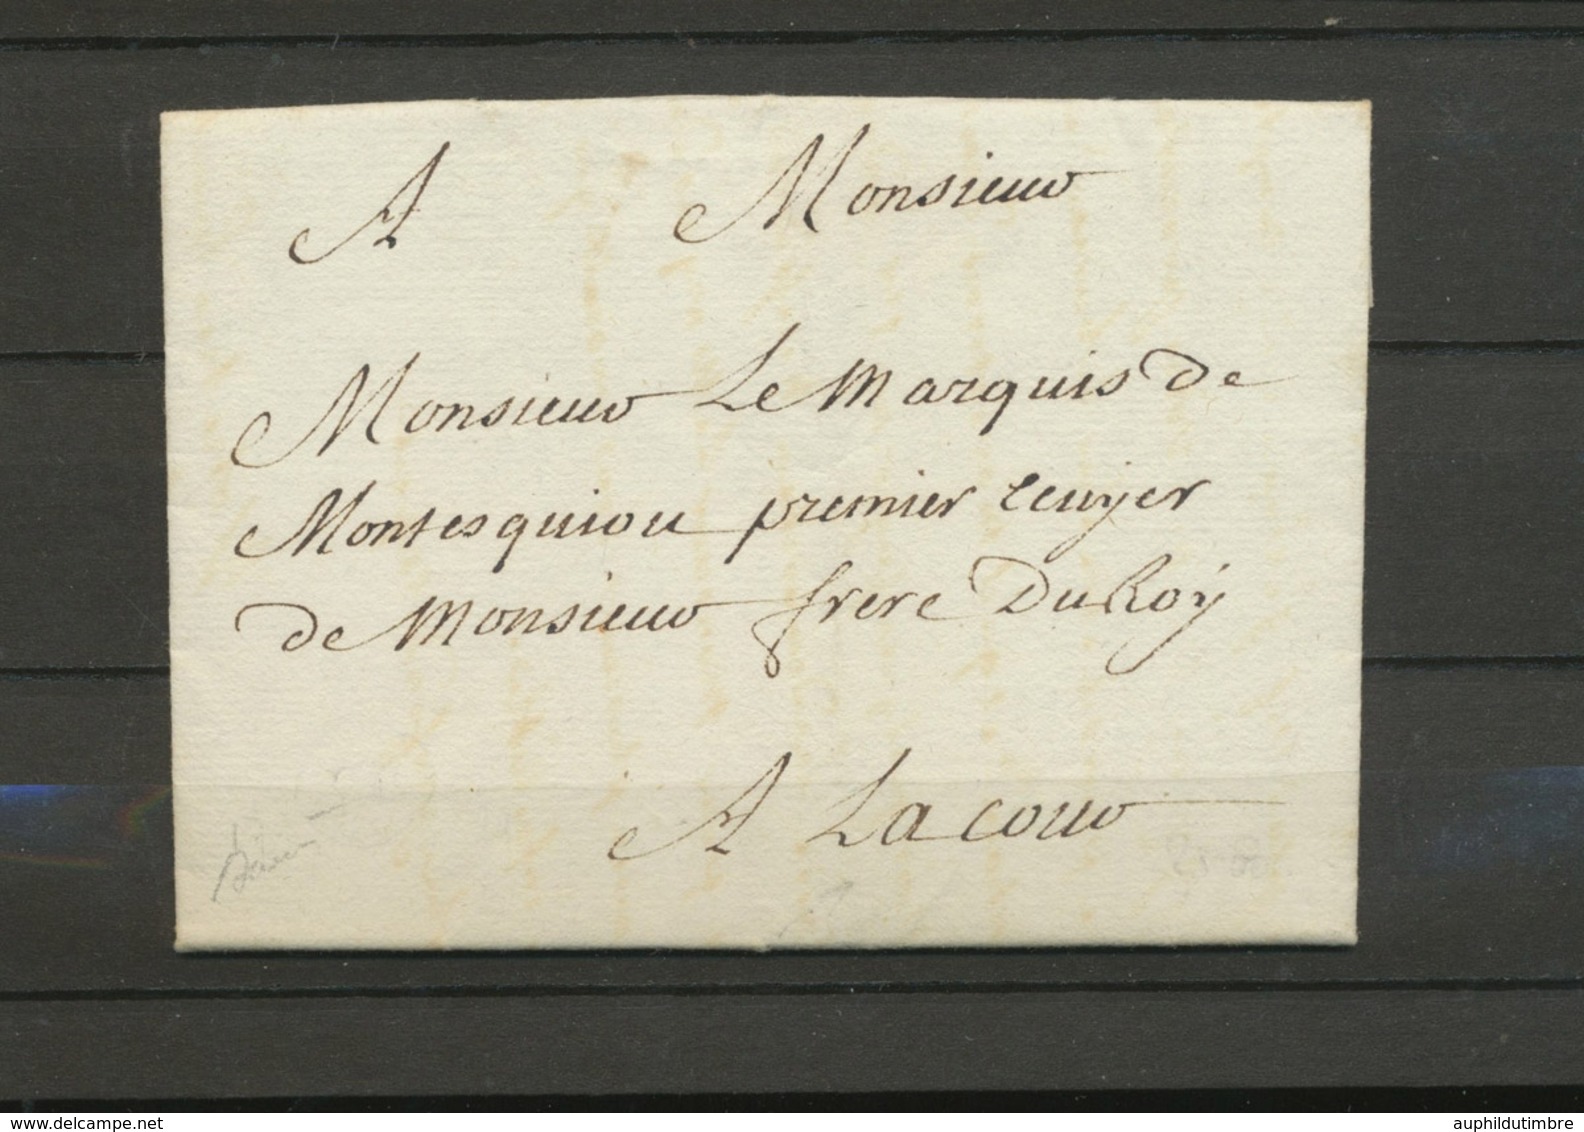 A Monsieur
Monsieur Le Marquis de
Montesquiou premier Ecuyer
de Monsieur frere Du Roy
A La cour
www.delcampe.net
auphildutimbre